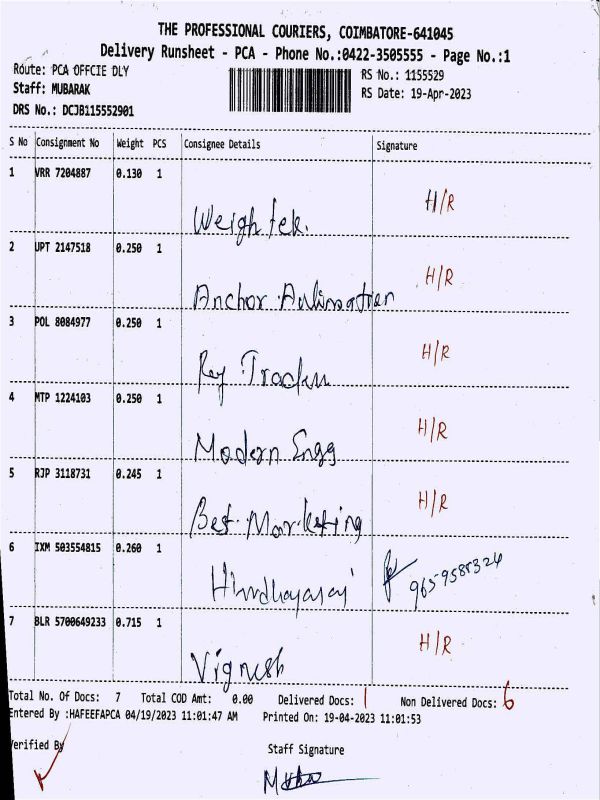 THE PROFESSIONAL COURIERS, COIMBATORE-641045
Delivery Runsheet - PCA - Phone No.:0422-3505555 - Page No.:1
Route: PCA OFFCIE DLY RS No.: 1155529
Staff: MUBARAK RS Date: 19-Apr-2023
DRS No.: DCJB115552901
S No Consignment No Weight PCS Consignee Details Signature
1 VRR 7204887 0.130 1
Weightek. H/R
2 UPT 2147518 0.250 1
Anchor H/R
3 POL 8084977 0.250 1
H/R
4 MTP 1224103 0.250 1
Modern Engg H/R
5 RJP 3118731 0.245 1
Best Marketing H/R
6 IXM 503554815 0.260 1
7 BLR 5700649233 0.715 1
Vignesh H/R
Total No. Of Docs: 7 Total COD Amt: 0.00 Delivered Docs: 1 Non Delivered Docs: 6
Entered By :HAFEEFAPCA 04/19/2023 11:01:47 AM Printed On: 19-04-2023 11:01:53
Verified By Staff Signature